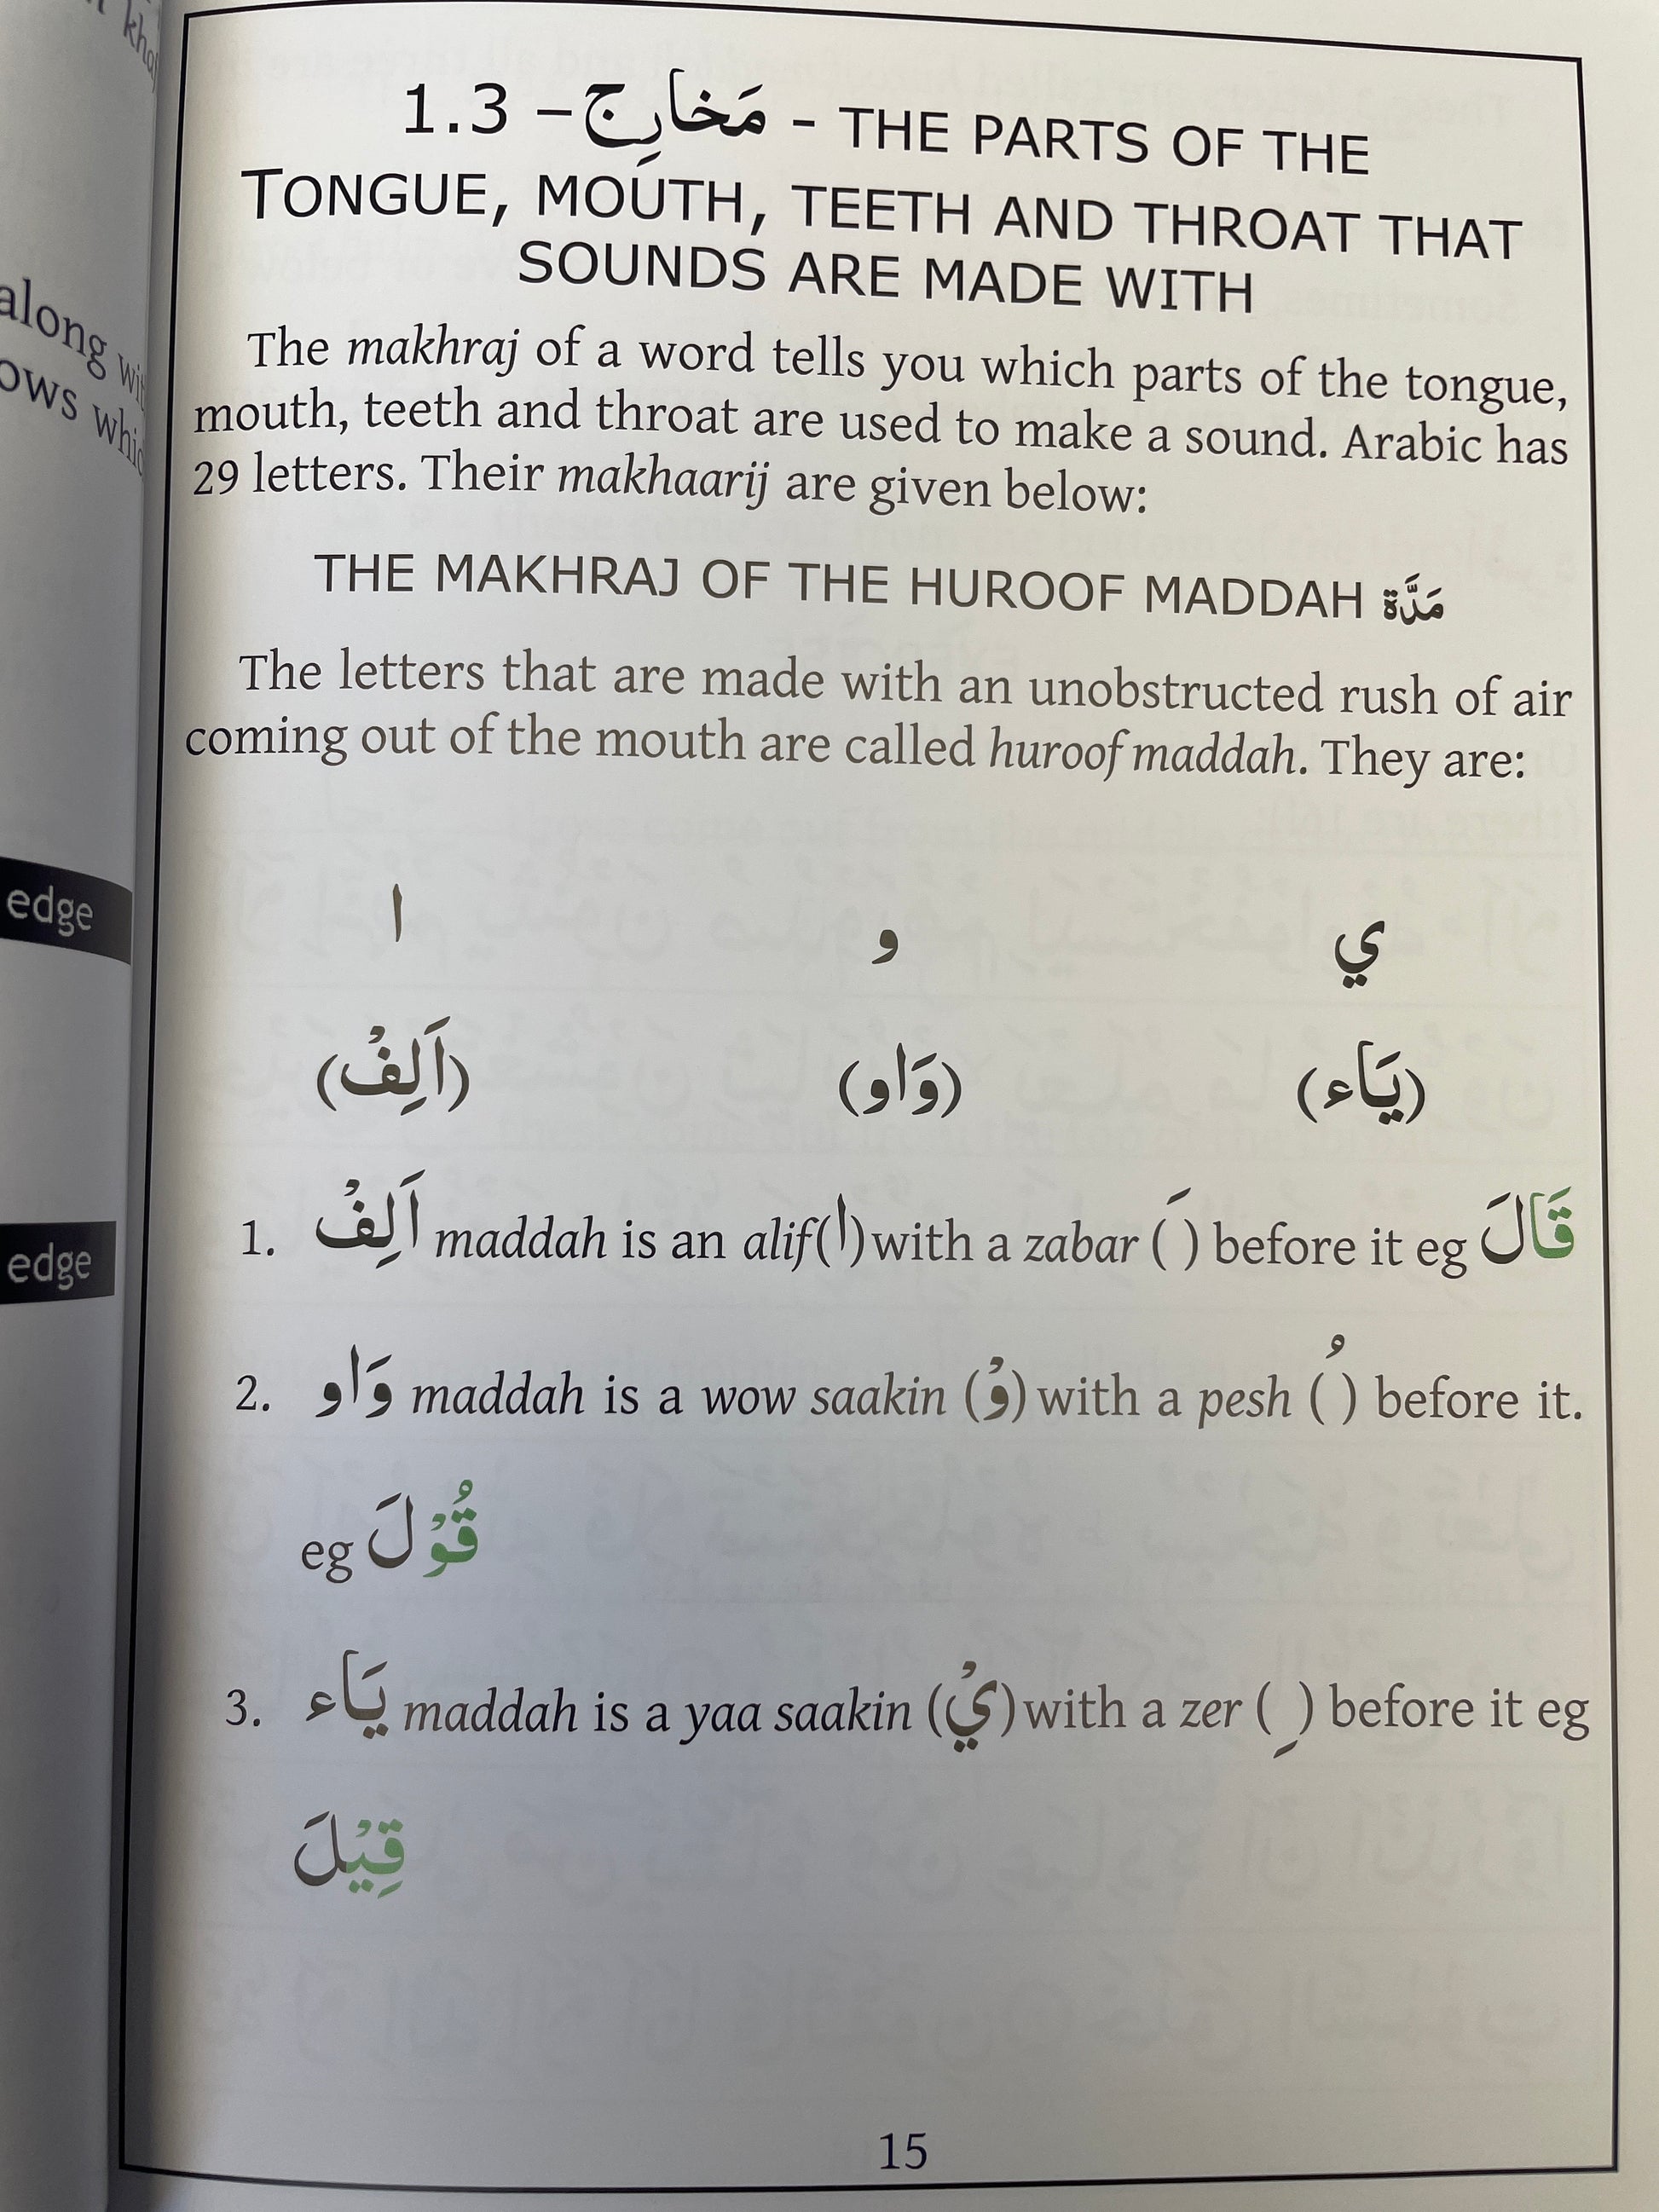 kho
along
ows
edge
edge
1.3 – مَخارِج - THE PARTS OF THE
TONGUE, MOUTH, TEETH AND THROAT THAT
SOUNDS ARE MADE WITH
The makhraj of a word tells you which parts of the tongue,
mouth, teeth and throat are used to make a sound. Arabic has
29 letters. Their makhaarij are given below:
THE MAKHRAJ OF THE HUROOF MADDAH مَدَّة
The letters that are made with an unobstructed rush of air
coming out of the mouth are called huroof maddah. They are:
ا و ي
(اَلِفْ) (وَاو) (يَاء)
1. اَلِفْ maddah is an alif(ا) with a zabar ( َ ) before it eg قَالَ
2. وَاو maddah is a wow saakin (وْ) with a pesh ( ُ ) before it.
eg قُوْلَ
3. يَاء maddah is a yaa saakin (يْ) with a zer ( ِ ) before it eg
قِيْلَ
15